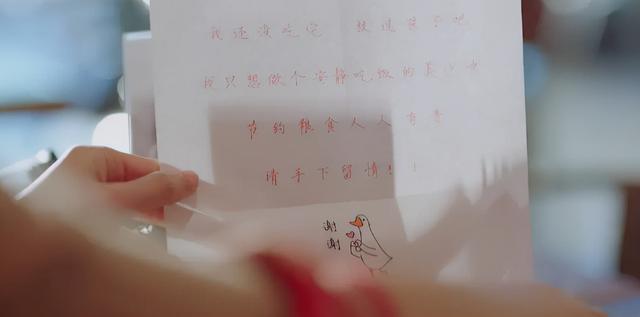 我还没吃完 放过孩子吧
我只想做个安静吃饭的美少女
节约粮食人人有责
请手下留情!!
谢谢